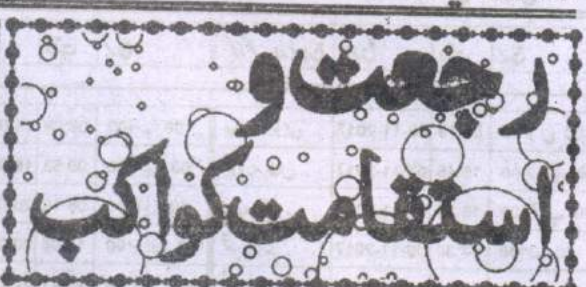 رجعت و
استقامت کواکب